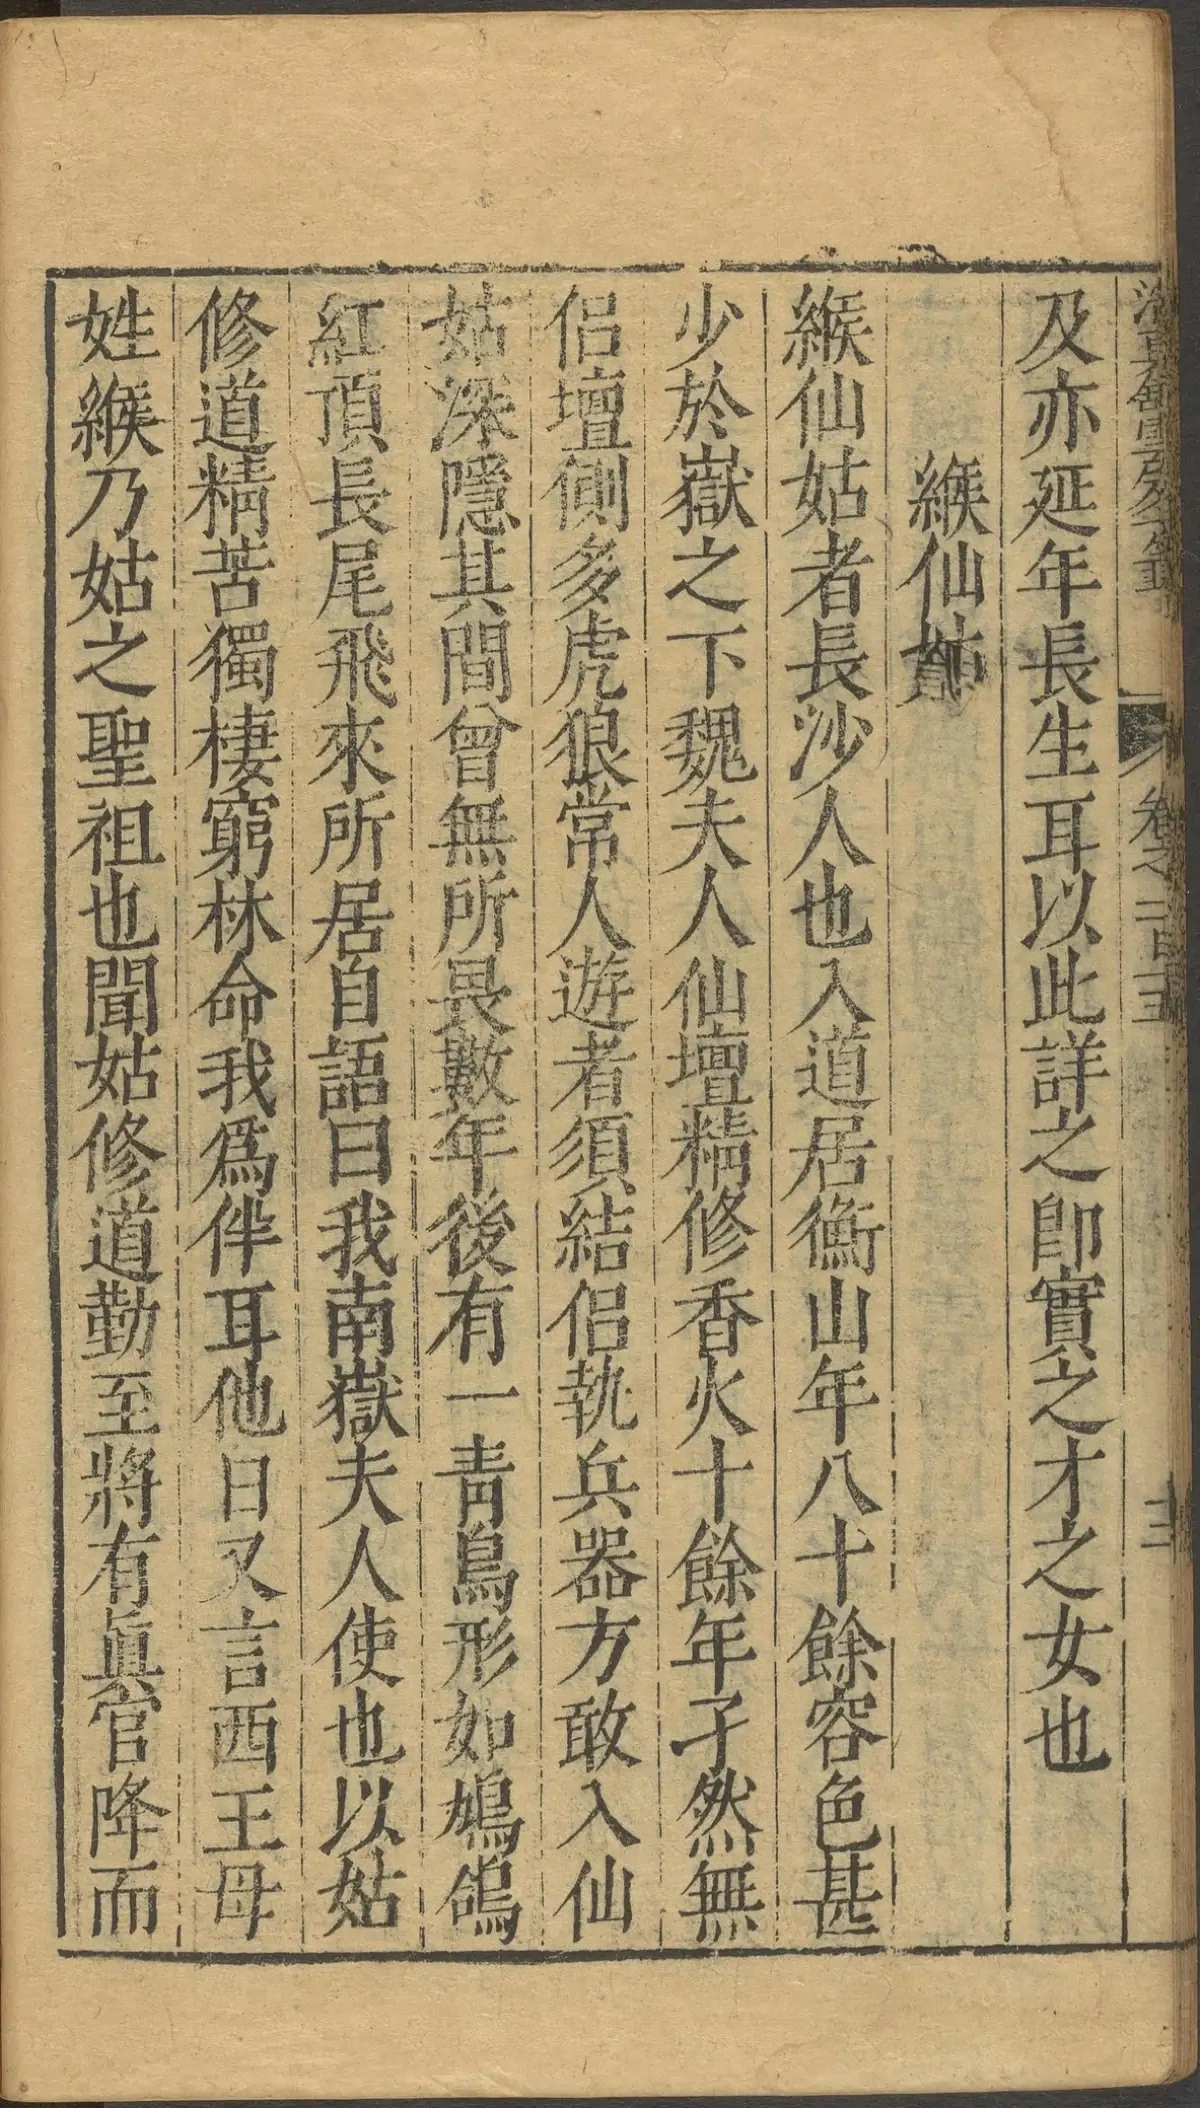 卷之一百十五
及亦延年長生耳以此詳之卽實之才之女也
緱仙姑
緱仙姑者長沙人也入道居衡山年八十餘容色甚
少於嶽之下魏夫人仙壇精修香火十餘年孑然無
侶壇側多虎狼常人遊者須結侶執兵器方敢入仙
姑深隱其間曾無所畏數年後有一靑鳥形如鳩鴿
紅頂長尾飛來所居自語曰我南嶽夫人使也以姑
修道精苦獨棲窮林命我爲伴耳他日又言西王母
姓緱乃姑之聖祖也聞姑修道勤至將有眞官降而